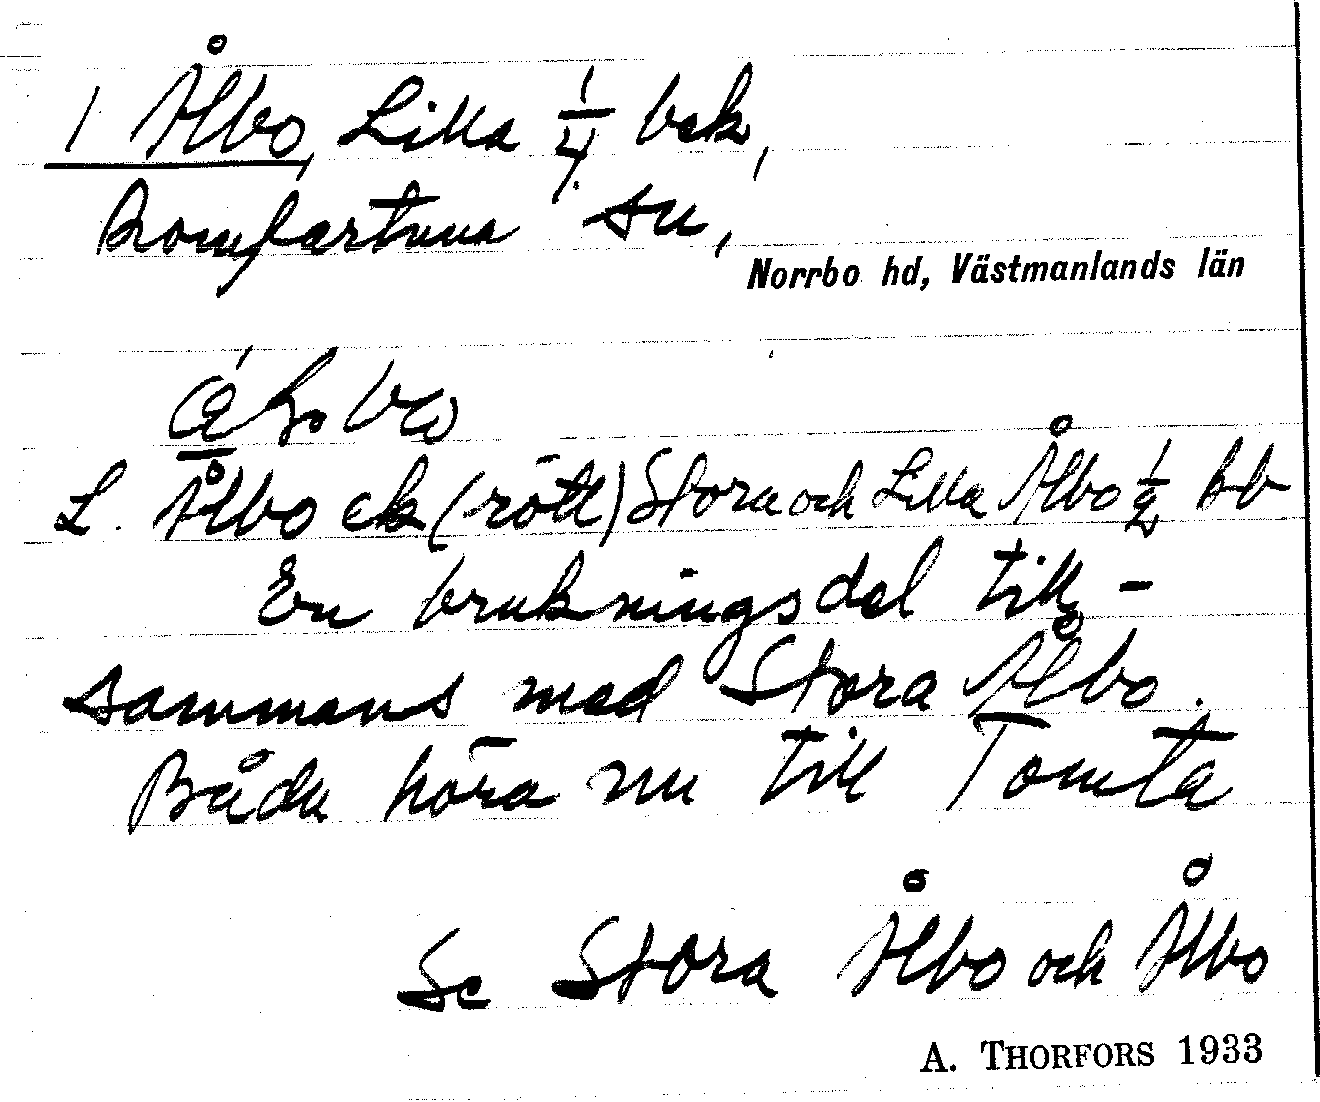 1 Ålbo, Lilla 1/4 bek,
Romfartuna sn,
Norrbo hd, Västmanlands län
L. Ålbo ek (rött) Stora och Lilla Ålbo 1/2 bb
En brukningsdel till-
sammans med Stora Ålbo.
Båda höra nu till Tomta
Se Stora Ålbo och Ålbo
A. THORFORS 1933